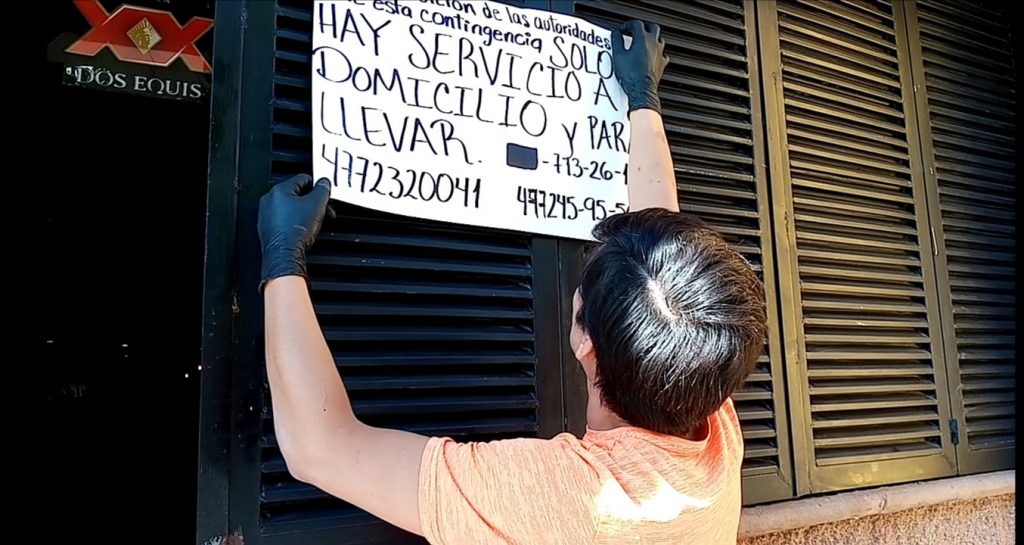 XX
DOS EQUIS
de las autoridades
esta contingencia SOLO
HAY SERVICIO A
DOMICILIO y PAR
LLEVAR.
-713-26-1
4772320041 477245-95-5